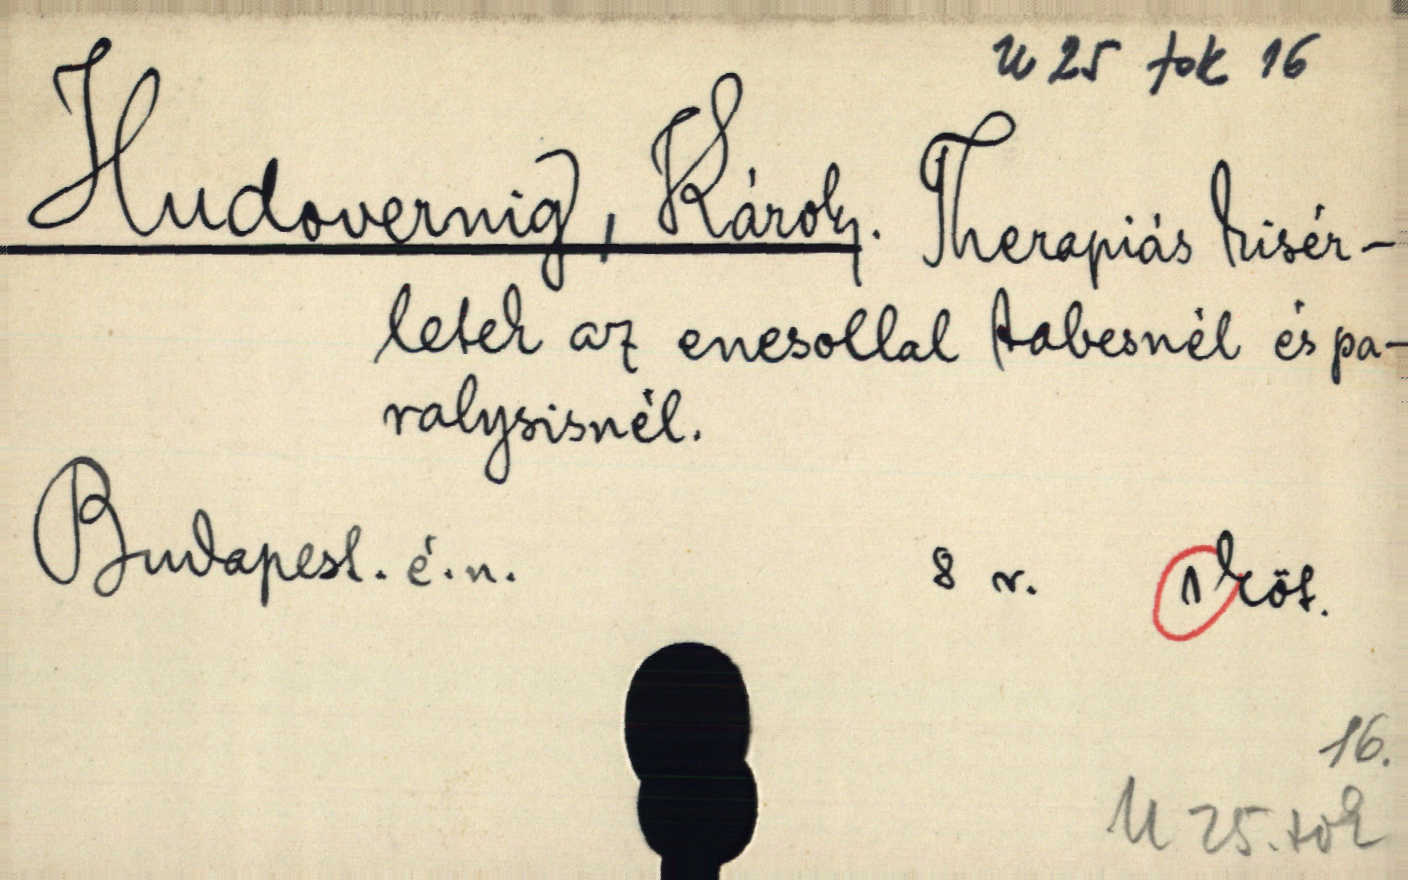 U 25 tok 16
Hudovernig, Károly. Therapiás kisér-
letek az enesollal tabesnél és pa-
ralysisnél.
Budapest. é.n. 8 r. 1 köt.
16.
U 25. tok